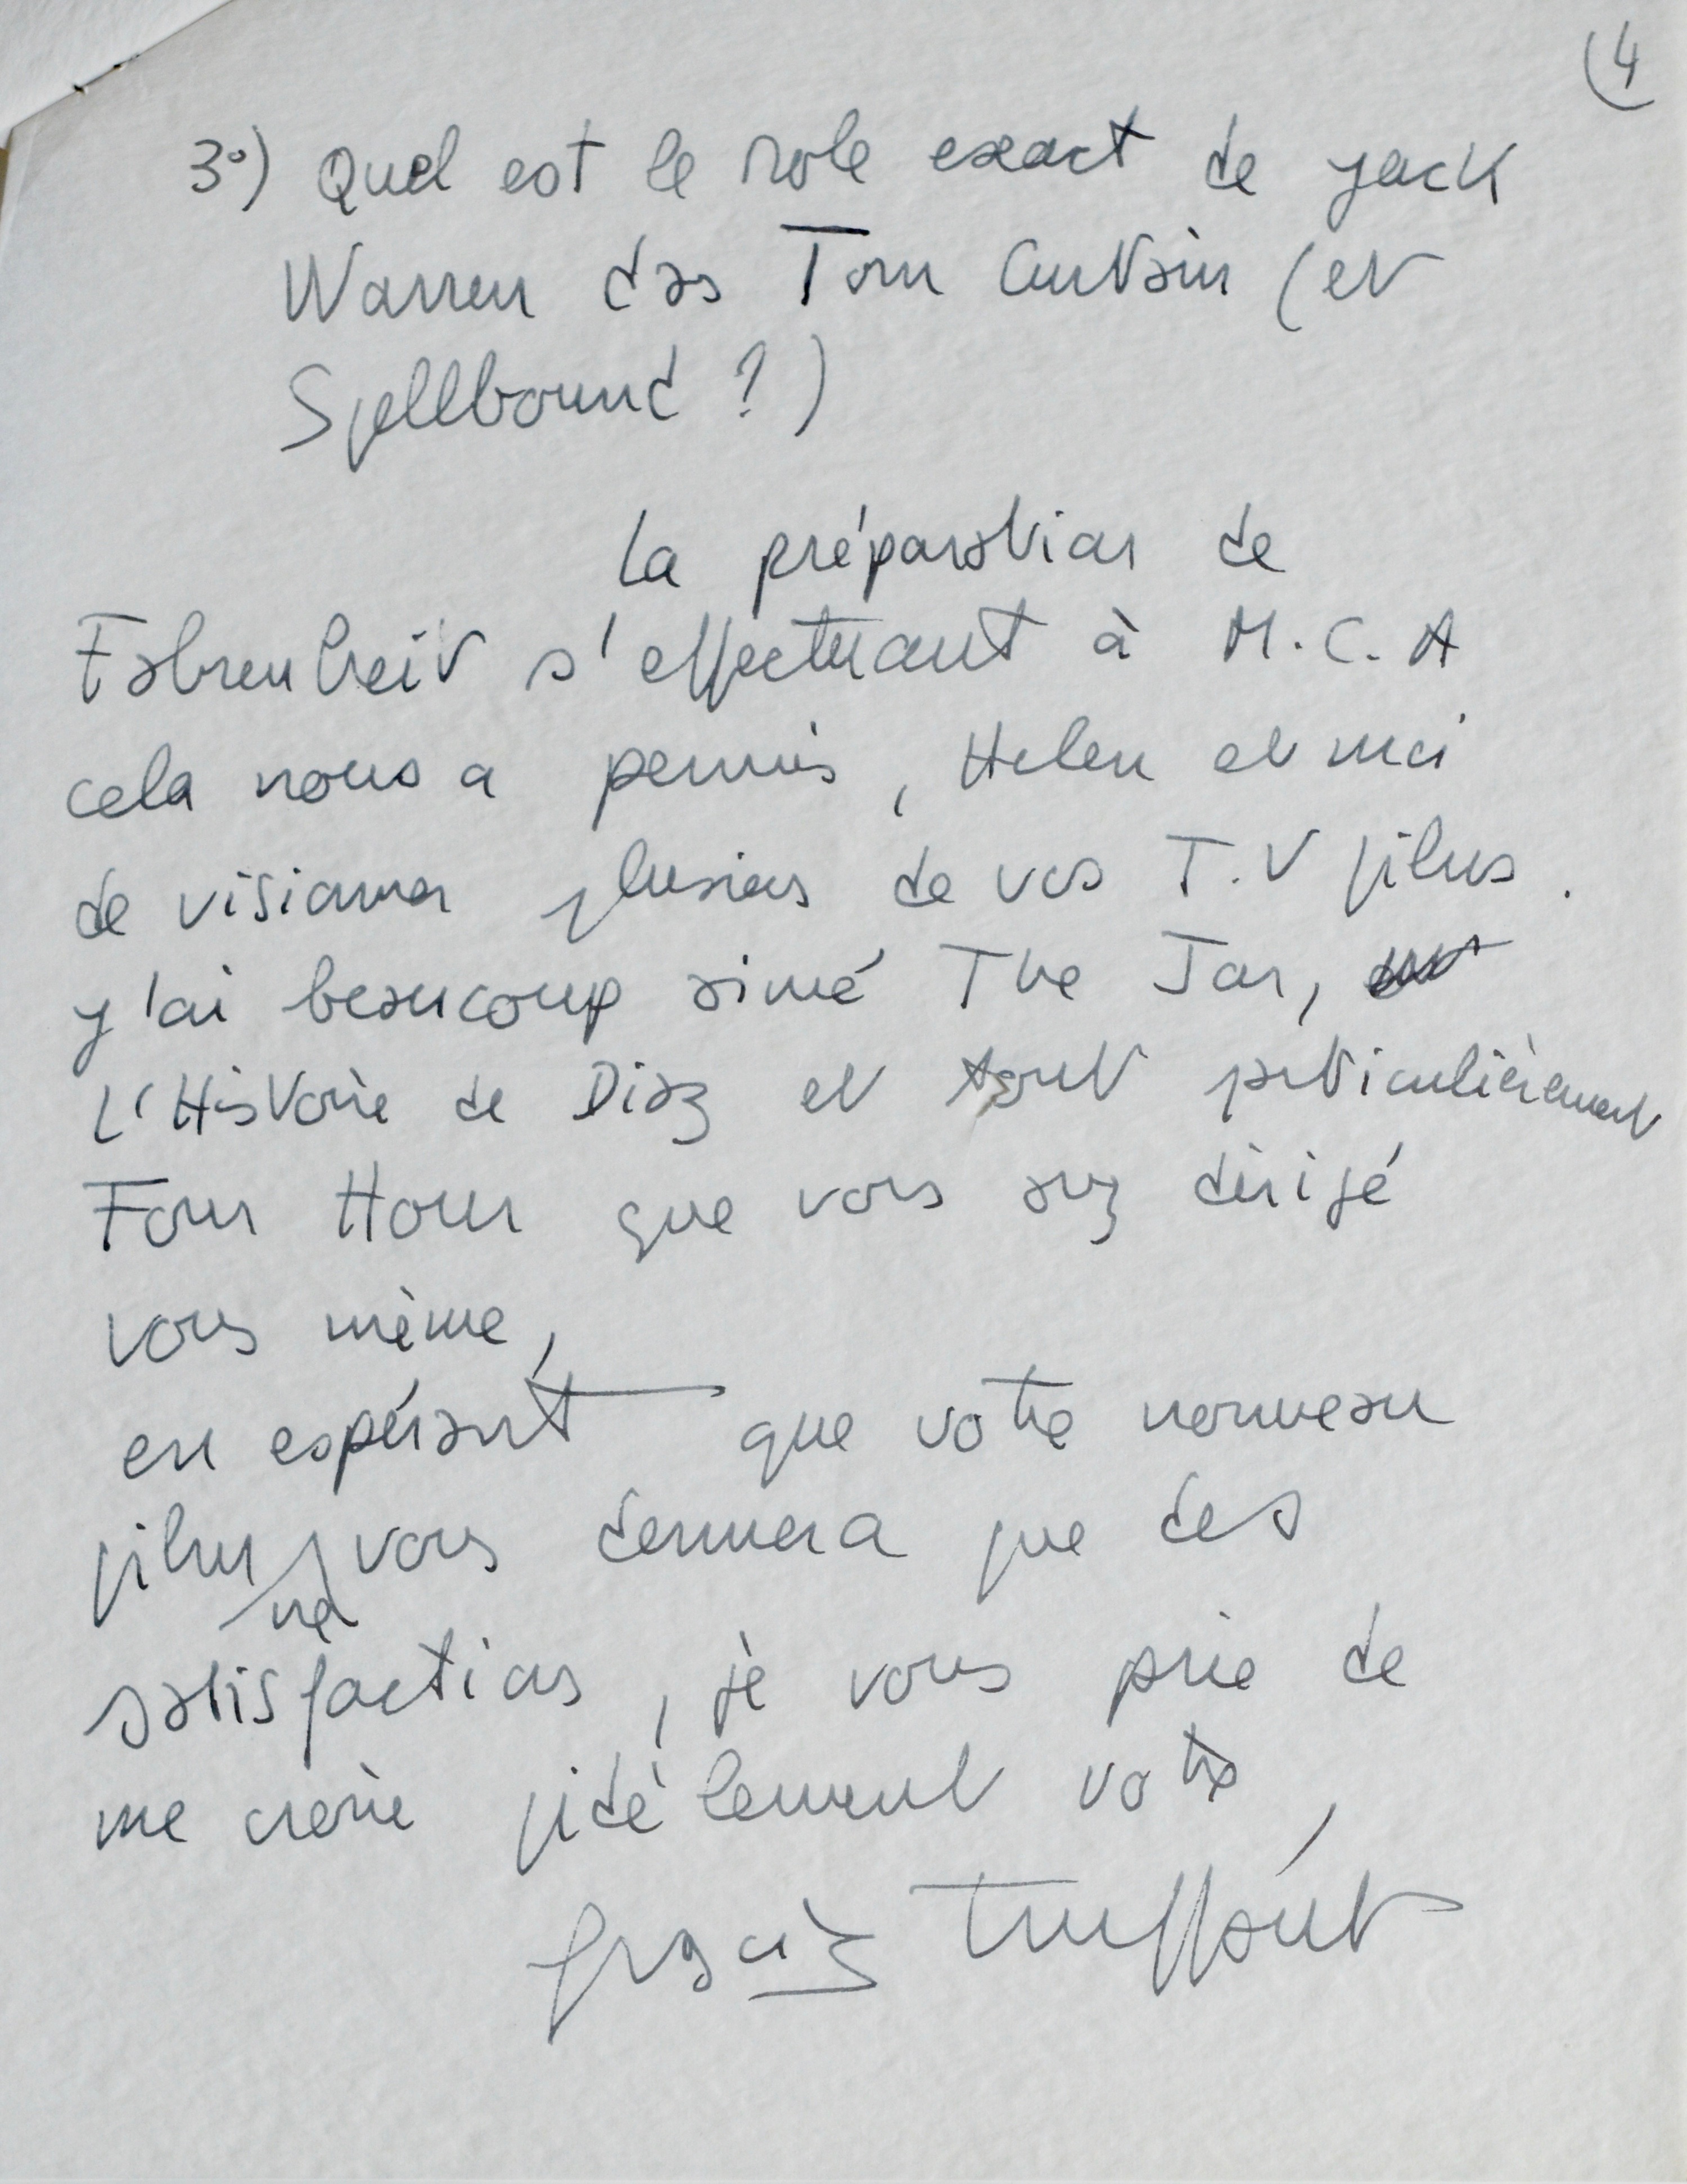 (4
3°) Quel est le role exact de Jack
Warren das Torn Curtain (et
Spellbound ?)
La préparation de
Fahrenheit s'effectuant à M.C.A
cela nous a permis, Helen et moi
de visionner plusieurs de vos T.V films.
J'ai beaucoup aimé The Jar,
L'Histoire de Diaz et tout particulièrement
Four Hour que vous avez dirigé
vous même,
en espérant que votre nouveau
film ne vous donnera que des
satisfactions, je vous prie de
me croire fidèlement votre,
françois truffaut